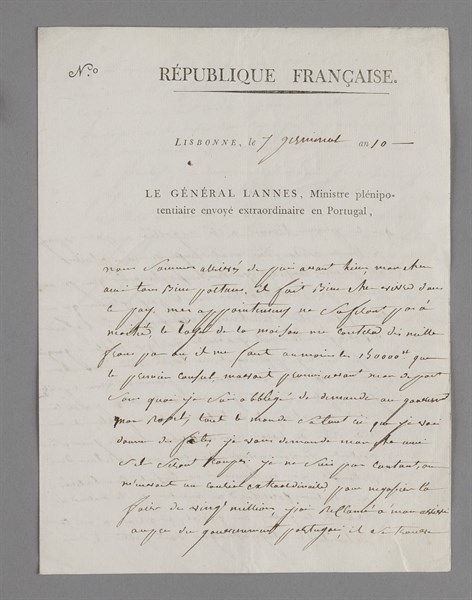 N.o
RÉPUBLIQUE FRANÇAISE.
LISBONNE, le 7 germinal an 10 —
LE GÉNÉRAL LANNES, Ministre plénipo-
tentiaire envoyé extraordinaire en Portugal,
nous sommes arrivés depuis avant hier mon cher
ami tous bien portans, il fait bien cher vivre dans
le pays, mes appointemens ne sufiront pas à
moitié, le de la maison me coutera dix mille
francs par an, il me faut au moins les 150000 que
le premier consul, m'avoit promis avant mon depart
sans quoi je soi obbligé de demande au gouvern
mon rapel, tout le monde s'atent ici que je vai
donne de fetes je vous demande mon cher ami
s'il seront trompés je ne suis pas contant, on
un courier extraordinaire pour negosier la
de vingt millions, j'ai reclamé a mon arrivée
aupre du gouvernement portugais, il se trouve